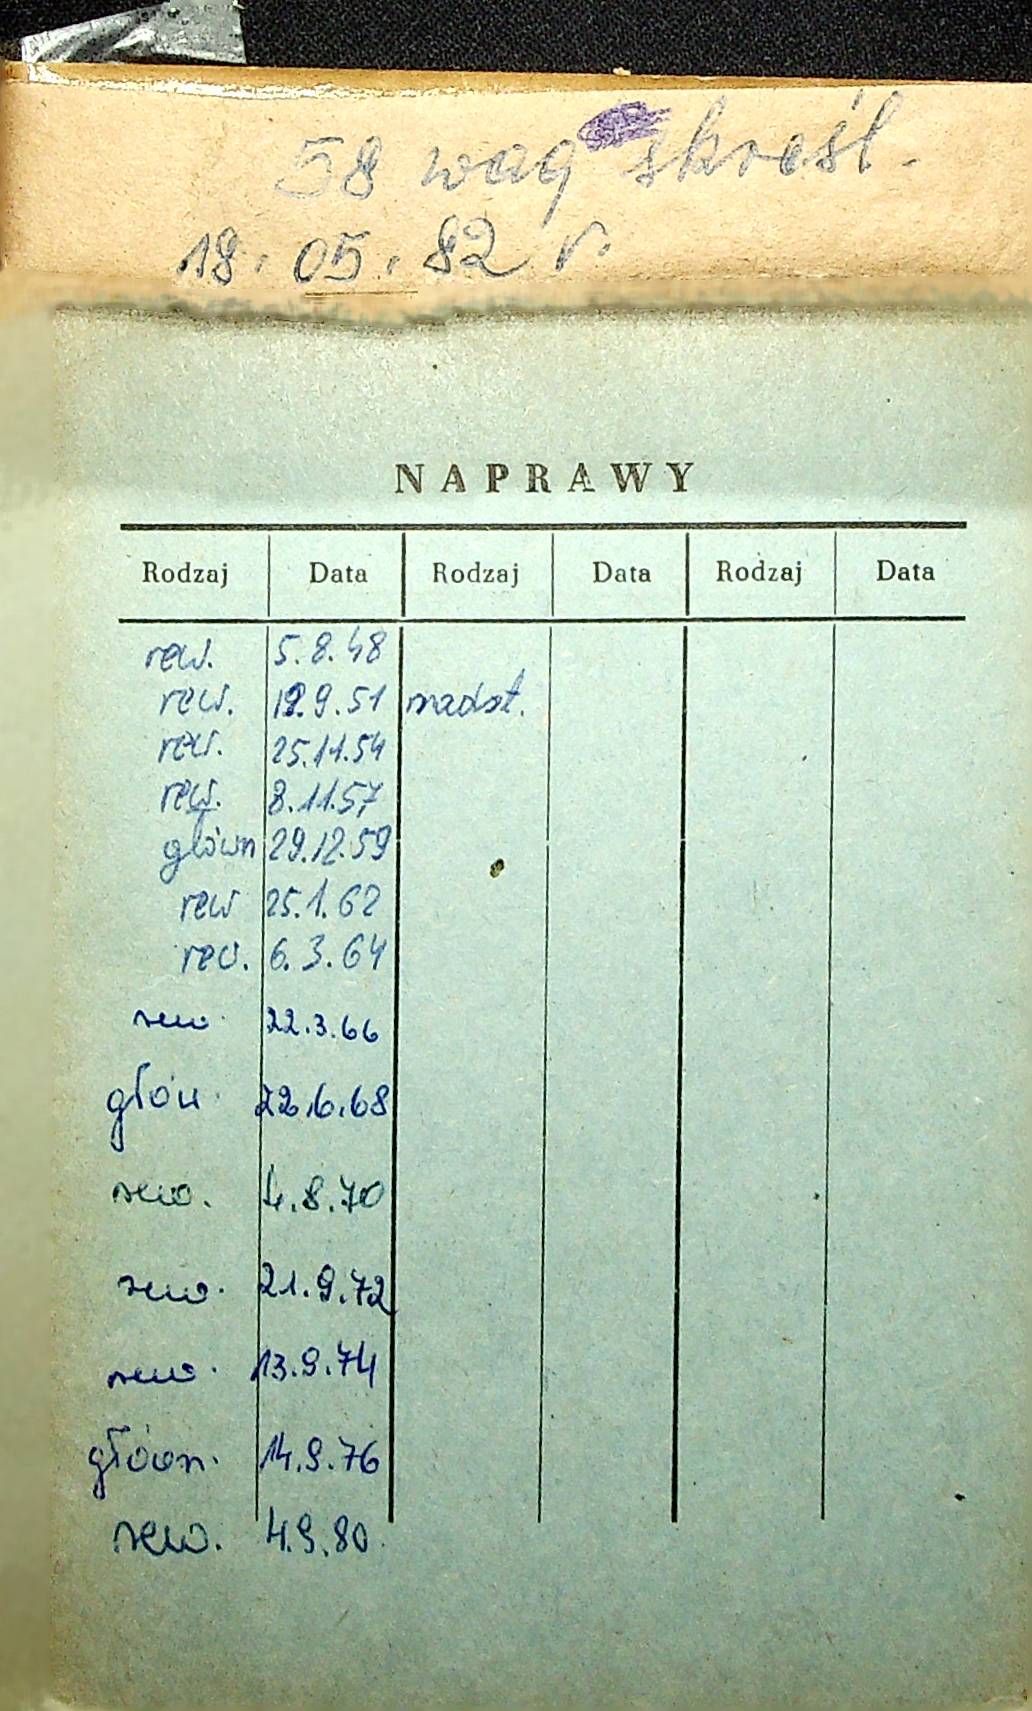 58 wag skreśl.
18. 05. 82 r.
NAPRAWY
Rodzaj Data Rodzaj Data Rodzaj Data
rew. 5.8.48
rew. 19.9.51 nadst.
rew. 25.11.54
rew. 8.11.57
główn 29.12.59
rew 25.1.62
rew. 6.3.64
rew. 22.3.66
głów. 22.6.68
rew. 4.8.70
rew. 21.9.72
rew. 13.9.74
główn. 14.9.76
rew. 4.9.80.